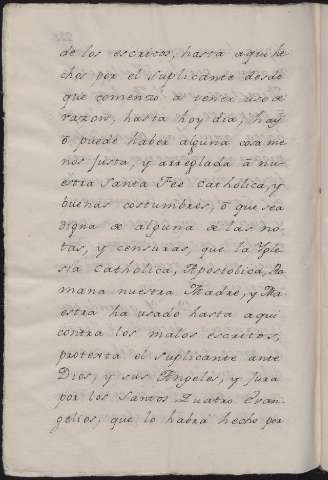 de los escritos, hasta aqui he
chos por el suplicante desde
que comenzó a tener uso de
razon, hasta hoy dia, hay
ō puede haber alguna cosa me
nos justa, y arreglada ā nu-
estra Santa Fee Catholica, y
buenas costumbres, ō que sea
digna de alguna de las no-
tas, y censuras, que la Ygle
sia Catholica, Apostolica, Ro
mana nuestra Madre, y Ma
estra ha usado hasta aqui
contra los malos escritos,
protexta el suplicante ante
Dios, y sus Angeles, y jura
por los Santos Quatro Evan-
gelios, que lo habrá hecho por